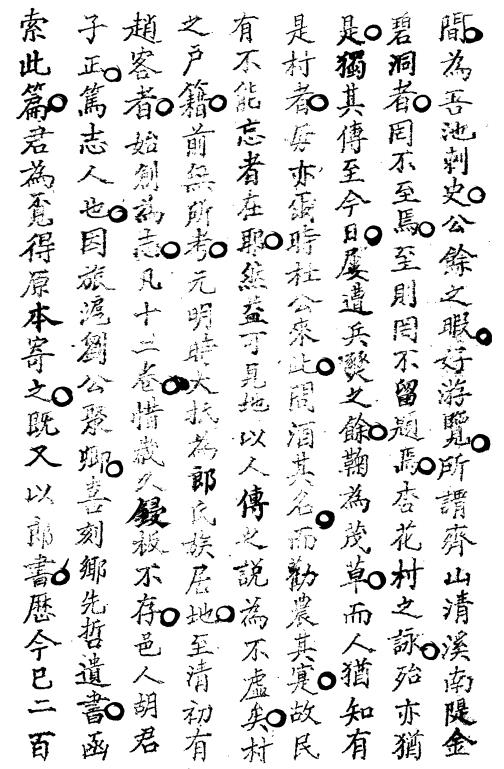 間為吾池刺史公餘之暇好游覽所謂齊山清溪南隄金
碧洞者罔不至焉至則罔不留題焉杏花村之詠殆亦猶
是獨其傳至今日屢遭兵燹之餘鞠為茂草而人猶知有
是村者毋亦當時杜公來此問酒其名而勸農其實故民
有不能忘者在耶然益可見地以人傳之說為不虛矣村
之户籍前無所考元明時大抵為郎氏族居地至清初有
趙客者始創為志凡十二卷惜歲久鋟板不存邑人胡君
子正篤志人也因旅滬劉公聚卿喜刻鄉先哲遺書函
索此篇君為覓得原本寄之既又以郎書歷今已二百